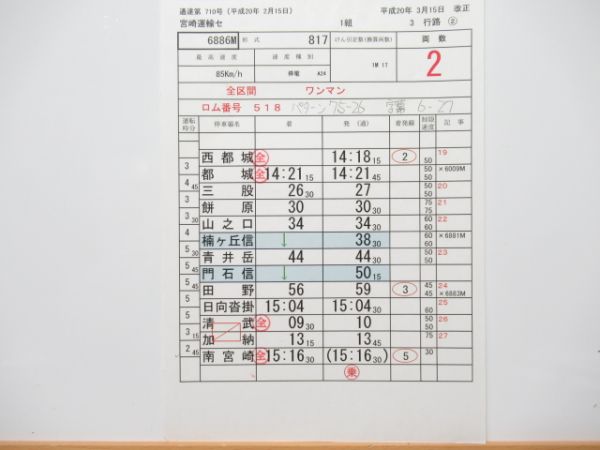 通達第 710号（平成20年 2月15日） 平成20年 3月15日 改正
宮崎運輸セ 1組 3 行路 ②
6886M 形式 817 けん引定数(換算両数) 両数
最高速度 速度種別 1M 1T 2
85Km/h 停電 A24
全区間 ワンマン
ロム番号 518 パターン 75-26 6-27
運転時分 停車場名 着 発 (通) 着発線 制限速度 記事
西都城 ㊎ 14:18 15 ② 50 19
3 都城 全 14:21 15 14:21 45 50 50 ×6009M
4 45 三股 26 30 27 50 50 20
3 餅原 30 30 30 75 75 21
3 30 山之口 34 34 30 60 60 22
4 楠ヶ丘信 ↓ 38 30 60 60 ×6881M
5 45 青井岳 44 44 30 50 50 23
5 45 門石信 ↓ 50 15
5 45 田野 56 59 3 45 45 24 ×6883M
5 日向沓掛 15:04 15:04 30 60 25
5 清武 全 09 30 10 50 50 26
3 15 加納 13 15 13 45 60 75 27
2 45 南宮崎 全 15:16 30 (15:16) 30 5 30
乗